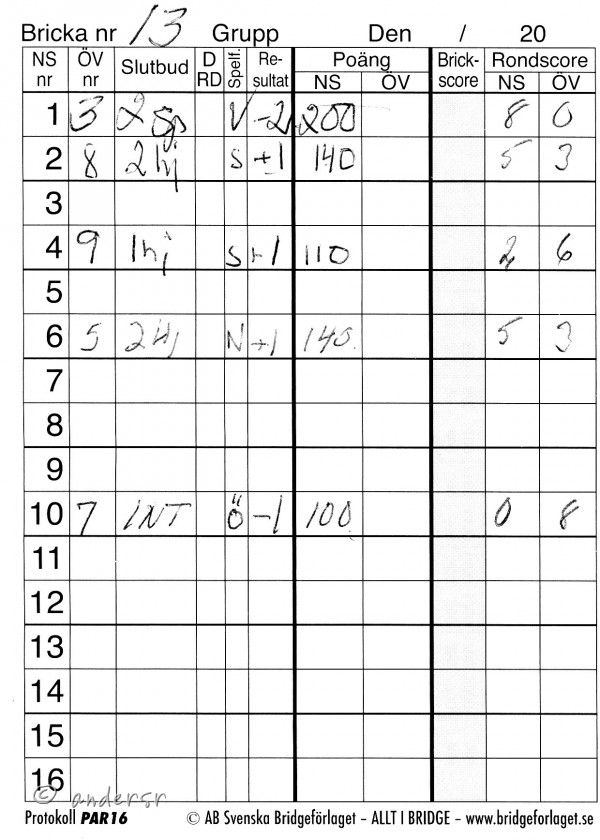 Bricka nr 13 Grupp Den / 20
NS nr ÖV nr Slutbud D RD Spelf. Re- sultat Poäng NS ÖV Brick- score Rondscore NS ÖV
1 3 2 Sp V -2 200 8 0
2 8 2 Hj S +1 140 5 3
3
4 9 1 hj S +1 110 2 6
5
6 5 2 Hj N +1 140 5 3
7
8
9
10 7 1NT Ö -1 100 0 8
11
12
13
14
15
16
© andersr
Protokoll PAR16 © AB Svenska Bridgeförlaget – ALLT I BRIDGE – www.bridgeforlaget.se